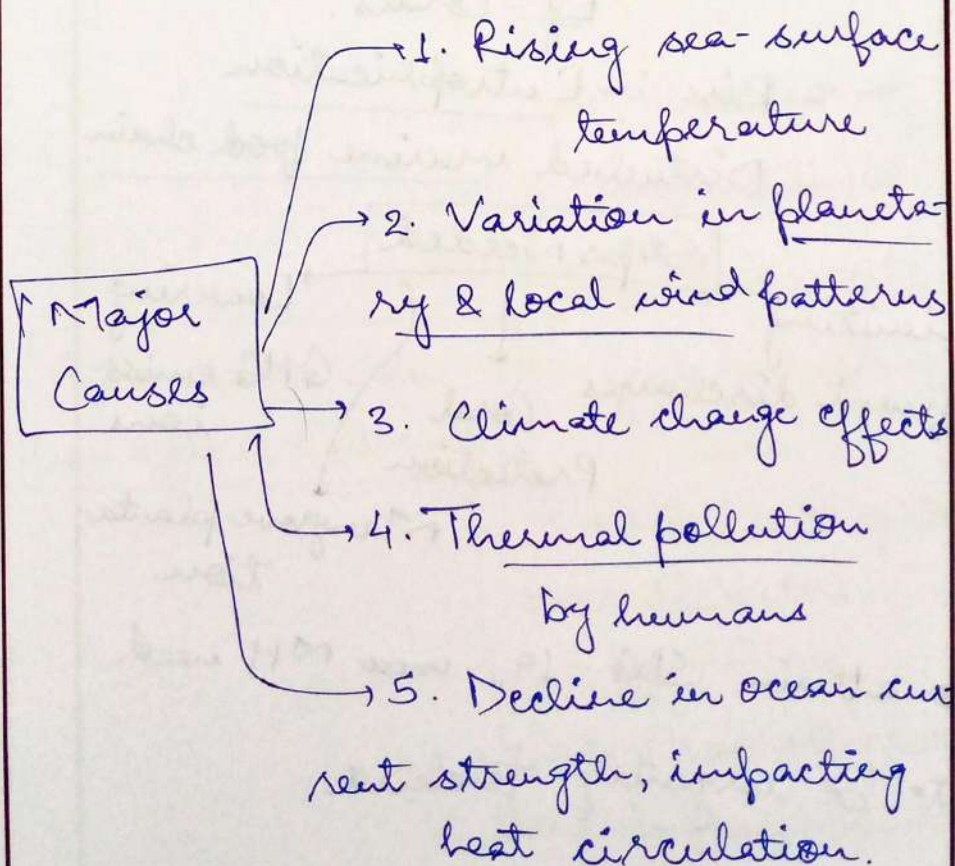 Major
Causes
1. Rising sea-surface
temperature
2. Variation in planeta-
ry & local wind patterns
3. Climate change effects
4. Thermal pollution
by humans
5. Decline in ocean cur
rent strength, impacting
heat circulation.